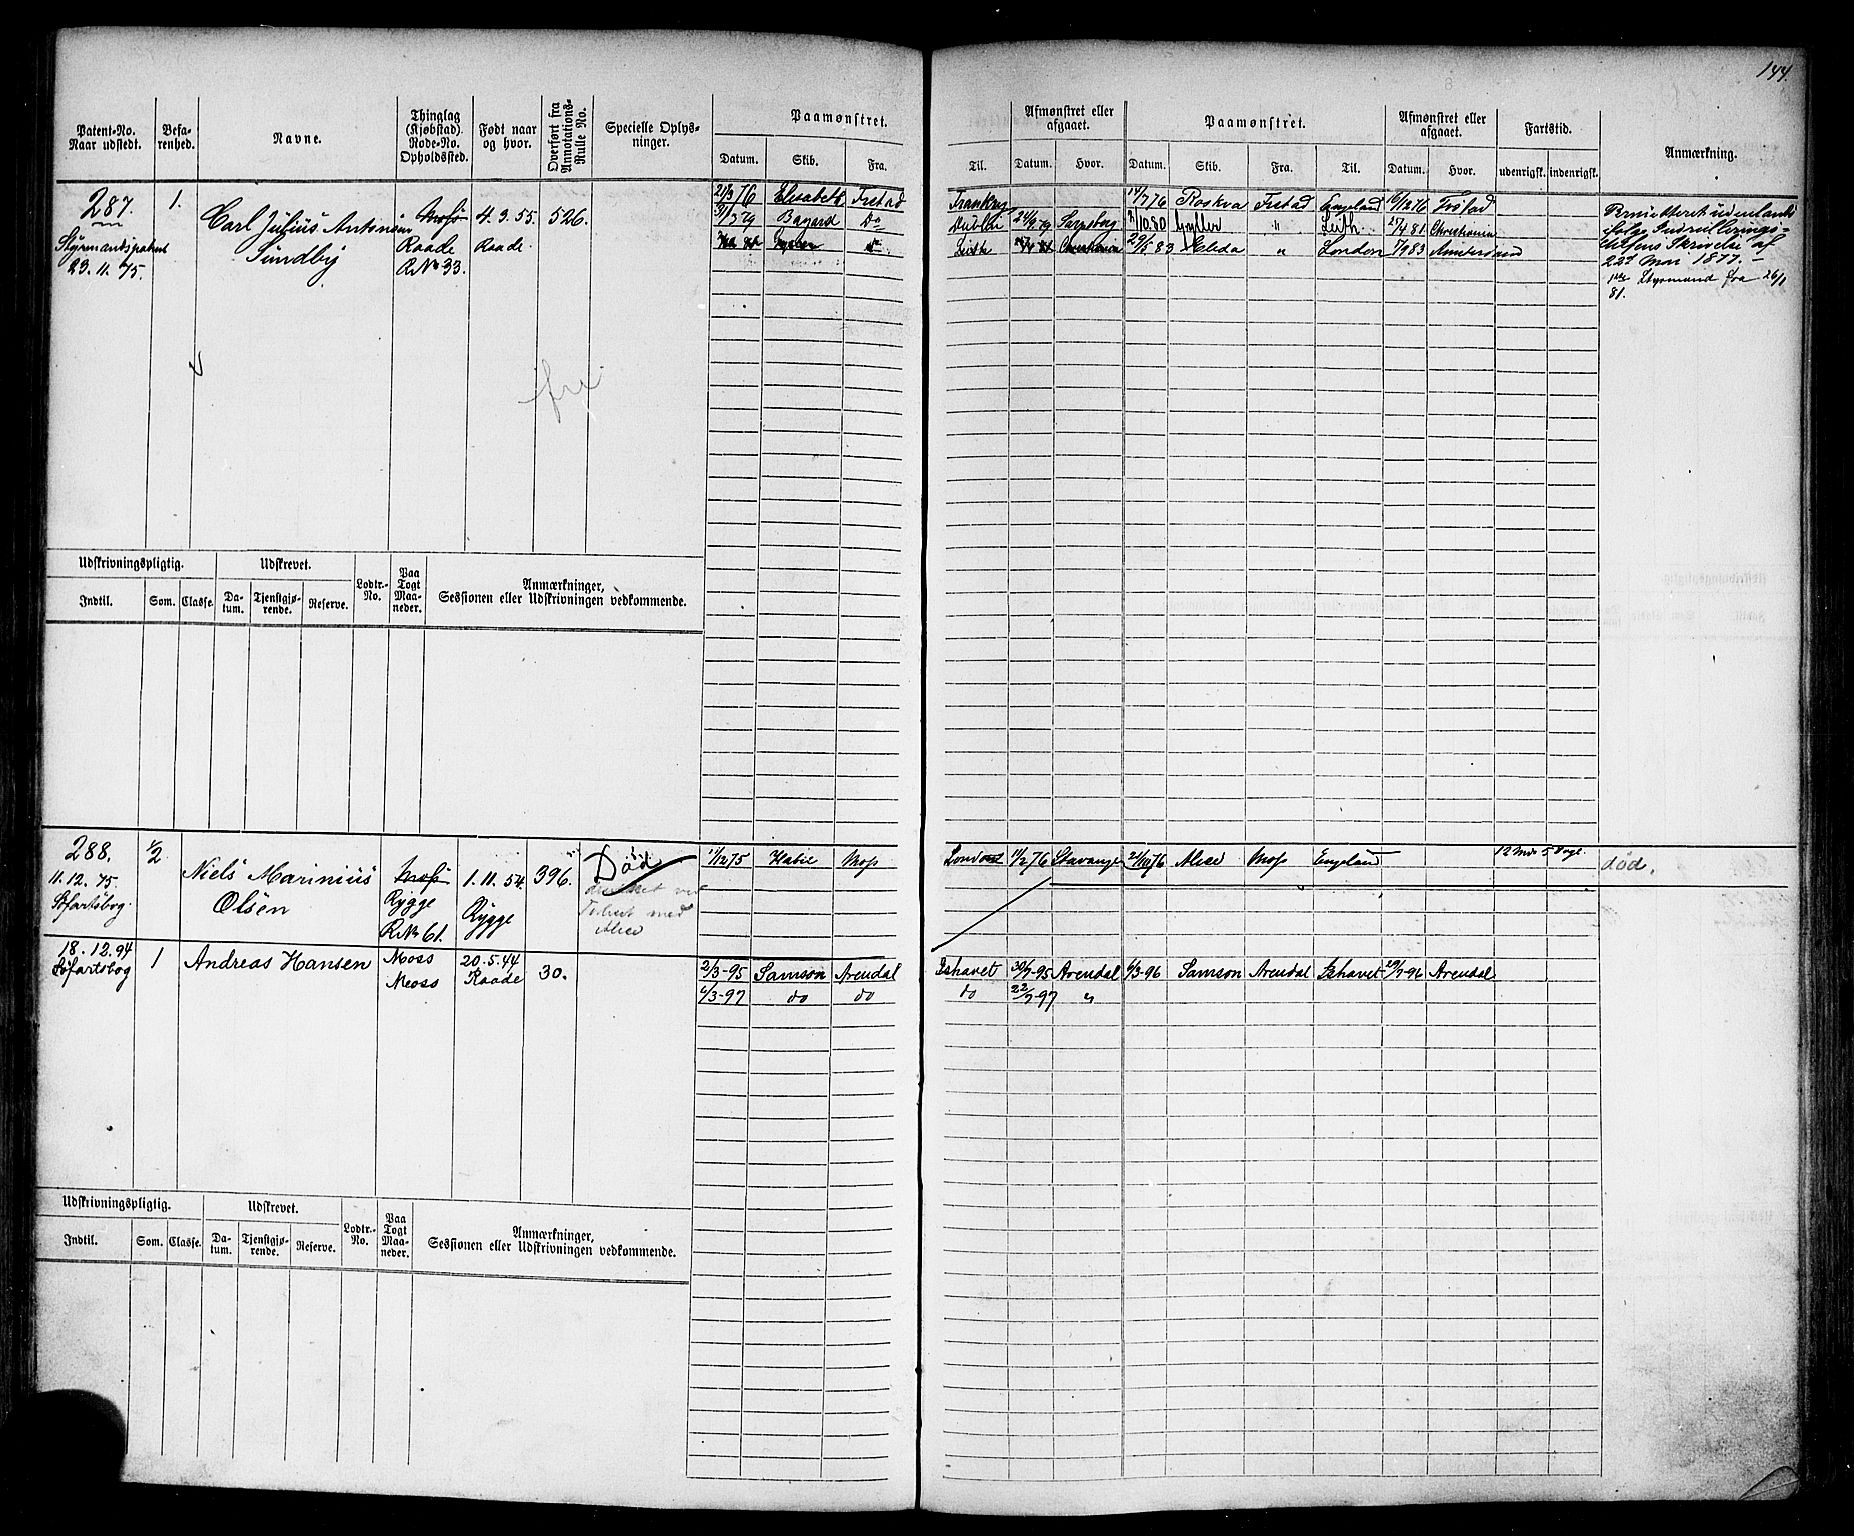 144.
Patent-No. Naar udstedt.
Befarenhed.
Navne.
Thinglag (Kjøbstad). Rode-No. Opholdssted.
Født naar og hvor.
Overført fra Annotations-Rulle No.
Specielle Oplysninger.
Paamønstret.
Datum. Skib. Fra.
Til.
Afmønstret eller afgaaet.
Datum. Hvor.
Paamønstret.
Datum. Skib. Fra. Til.
Afmønstret eller afgaaet.
Datum. Hvor.
Fartstid.
udenrigsk. indenrigsk.
Anmærkning.
287. 1. Carl Julius Antonsen Moss 4.3.55. 526.
Styrmandspatent Sundby Raade Raade
23.11.75. R.No 33.
fra
21/3 76 Elisabeth Frstad
31/7 79 Bayard Do
Dublin 24/9 79 Sarpsborg
Leith
17/7 76 Roskva Frstad England 16/12 76
10.80 " Leith 27/4 81.
29/5 83 " London 7/9 83 Amsterdam
Skrivelse af
22d Mai 1877. –
1ste Styrmand fra 26/1
81.
Udskrivningspligtig. Udskrevet. Lodtr.-No. Paa Togt Maaneder. Anmærkninger, Sessionen eller Udskrivningen vedkommende.
Indtil. Som. Classe. Datum. Tjenstgjørende. Reserve.
288. 1/2 Niels Marinius Moss 1.11.54. 396. Død
11.12.75. Olsen Rygge Rygge
Søfartsbog. R.No 61.
med
Alice
11/12 75 Moss
11/2 76 Stavanger 21/10 76 Alice Moss England
12 Mdr 5 Dage
død.
18.12.94 1 Andreas Hansen Moss 20.5.44 30.
Søfartsbog Moss Raade
2/3-95 Samson Arendal Ishavet 30/7-95 Arendal 6/3-96 Samson Arendal Ishavet 29/7-96 Arendal
6/3-97 do do do 22/7-97 "
Udskrivningspligtig. Udskrevet. Lodtr.-No. Paa Togt Maaneder. Anmærkninger, Sessionen eller Udskrivningen vedkommende.
Indtil. Som. Classe. Datum. Tjenstgjørende. Reserve.